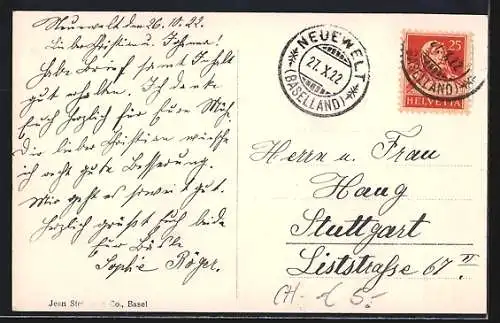 Neuewelt den 26.10.22.
Liebe Christian u. Johanna!
Habe Brief samt Inhalt
gut erhalten. Ich danke
Euch herzlich für Eure Müh,
Dir lieber Christian wünsche
ich recht gute Besserung.
Mir geht es soweit gut.
Herzlich grüßt Euch beide
Eure Bäsle
Sophie Röger.
Jean St Co., Basel
NEUEWELT
27.X.22
(BASELLAND)
25
HELVETIA
(BASELLAND)
Herrn u. Frau
Haug
Stuttgart
Liststrasse 67 II.
CH - 5.-